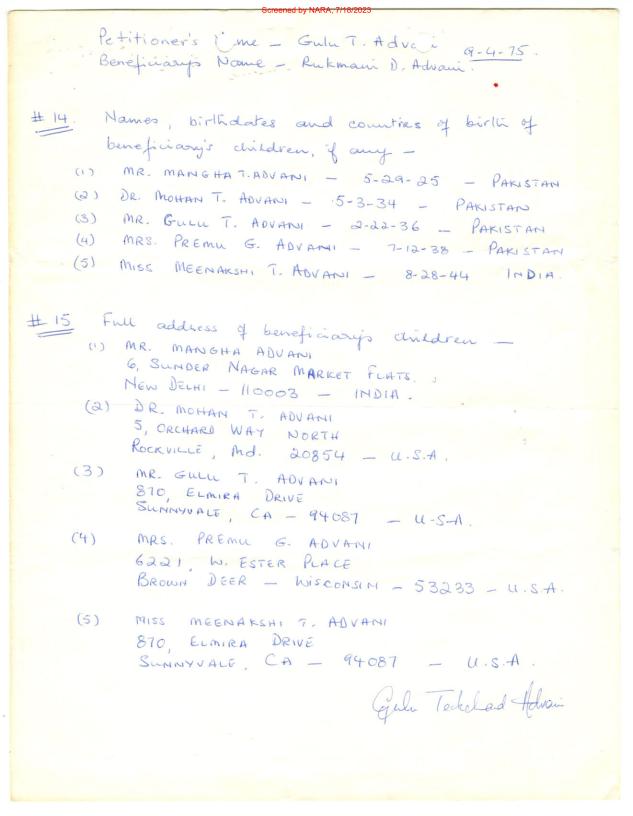 Screened by NARA, 7/18/2023
Petitioner's – Gulu T. Advani 9-4-75.
Beneficiary's Name – Rukmani D. Advani.
# 14 Names, birthdates and countries of birth of
beneficiary's children, if any –
(1) MR. MANGHA T. ADVANI – 5-29-25 – PAKISTAN
(2) DR. MOHAN T. ADVANI – 5-3-34 – PAKISTAN
(3) MR. GULU T. ADVANI – 2-22-36 – PAKISTAN
(4) MRS. PREMU G. ADVANI – 7-12-38 – PAKISTAN
(5) MISS MEENAKSHI T. ADVANI – 8-28-44 INDIA.
# 15 Full address of beneficiary's children –
(1) MR. MANGHA ADVANI
6, SUNDER NAGAR MARKET FLATS.
NEW DELHI – 110003 – INDIA.
(2) DR. MOHAN T. ADVANI
5, ORCHARD WAY NORTH
ROCKVILLE, Md. 20854 – U.S.A.
(3) MR. GULU T. ADVANI
870, ELMIRA DRIVE
SUNNYVALE, CA – 94087 – U-S-A.
(4) MRS. PREMU G. ADVANI
6221, W. ESTER PLACE
BROWN DEER – WISCONSIN – 53233 – U.S.A.
(5) MISS MEENAKSHI T. ADVANI
870, ELMIRA DRIVE
SUNNYVALE, CA – 94087 – U.S.A.
Gulu Tekchad Advani